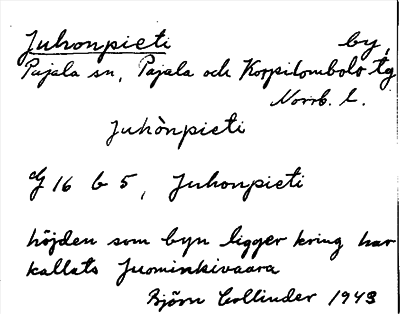 Juhonpieti by,
Pajala sn, Pajala och Korpilombolo tg
Norrb. l.
Juhònpieti
G 16 b 5, Juhonpieti
höjden som byn ligger kring har
kallats Juominkivaara
Björn Collinder 1943